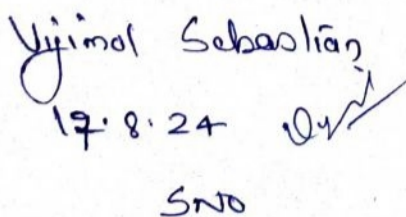 Vijimol Sebastian
17.8.24
SNO